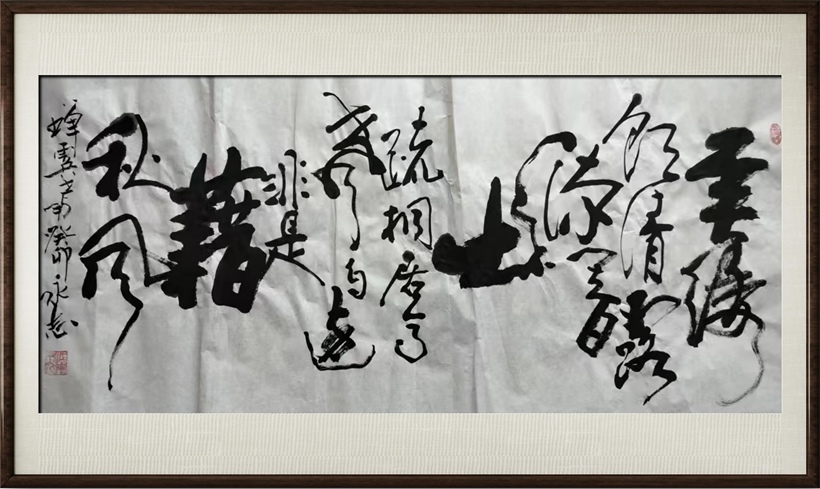 垂緌
饮清露
流響
出
疏桐居高
声自远
非是
藉
秋风
蝉虞世南癸卯永志